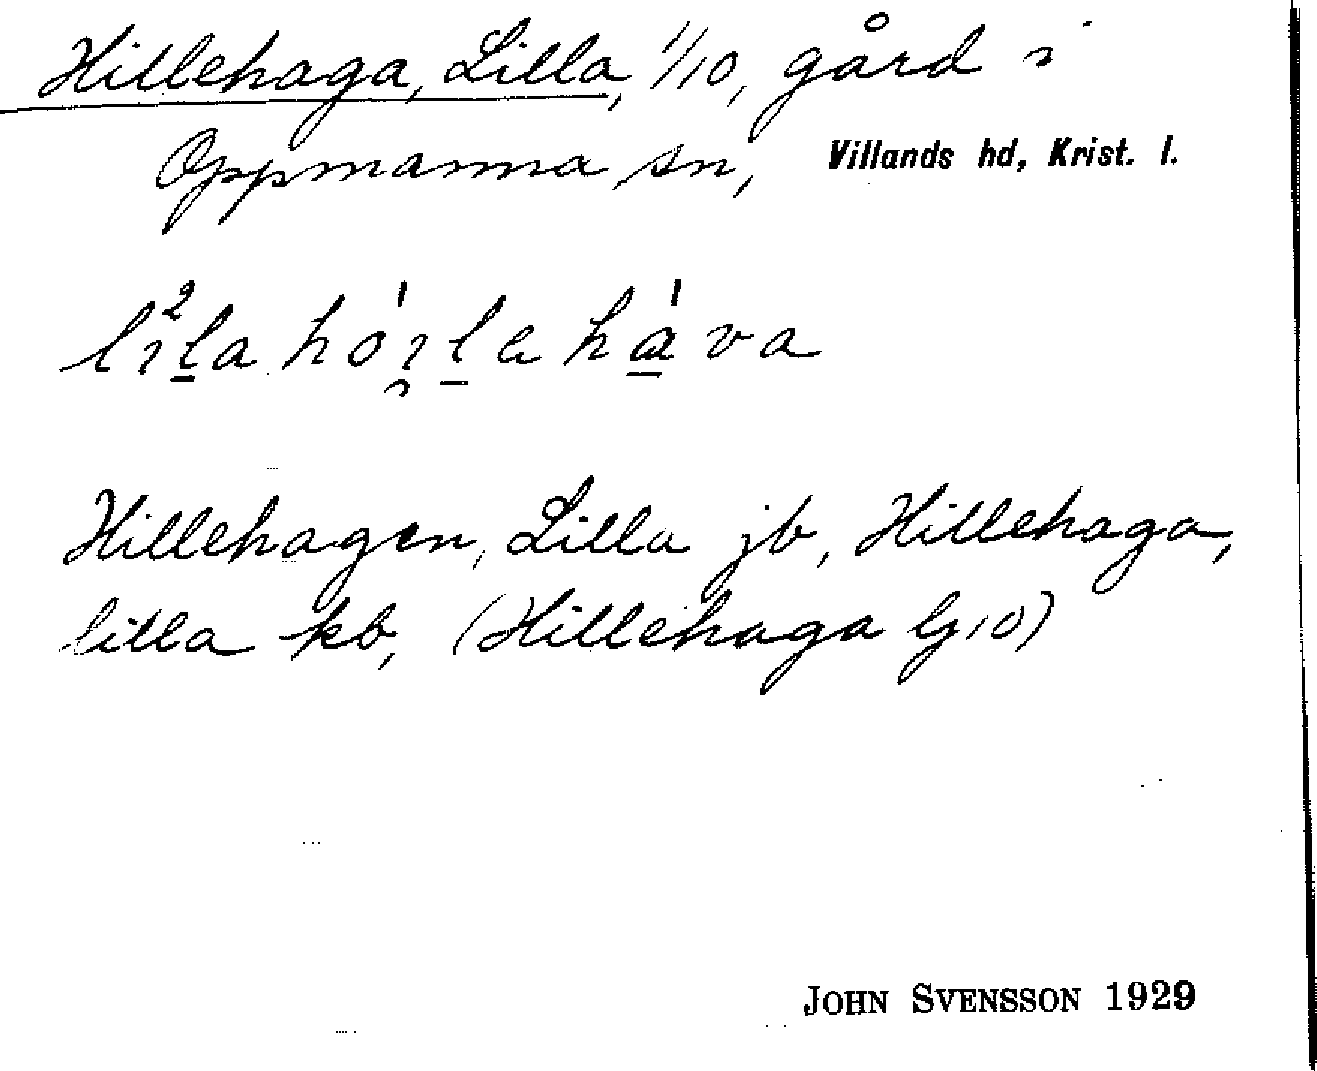 Hillehaga, Lilla, 1/10, gård i
Oppmanna sn, Villands hd, Krist. l.
Hillehagen, Lilla jb, Hillehaga,
lilla kb, (Hillehaga Gj10)
JOHN SVENSSON 1929